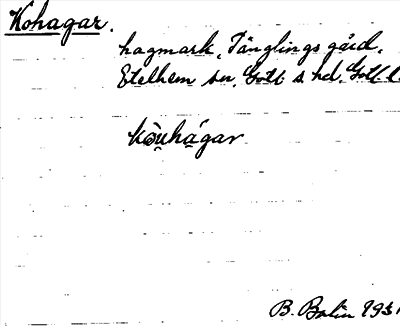 Kohagar.
hagmark, Tänglings gård,
Etelhem sn, Gotl s hd. Gotl. l.
kǝu̯hágar
B. Bolin 1931